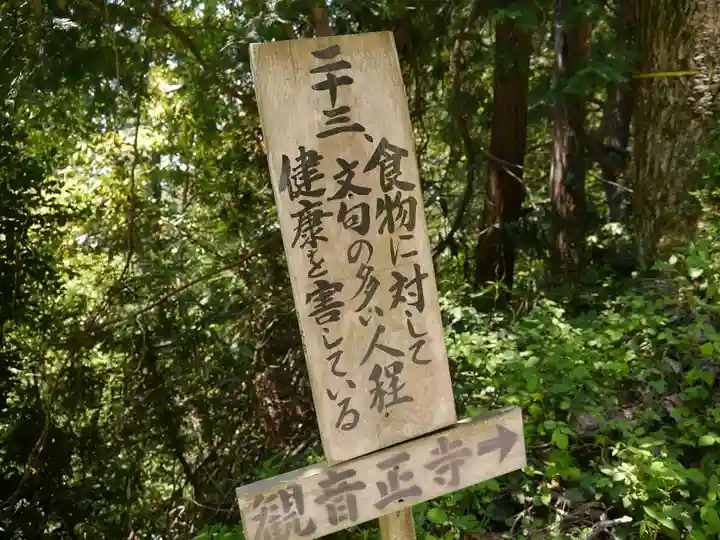 二十三、
食物に対して
文句の多い人程
健康を害している
観音正寺→